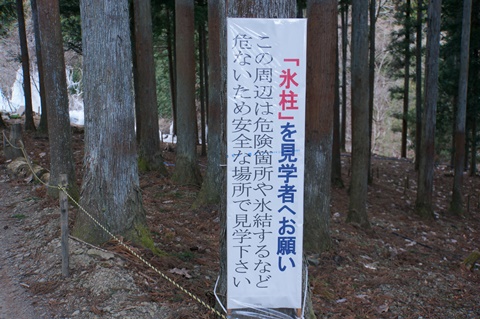 「氷柱」を見学者へお願い
この周辺は危険箇所や氷結するなど
危ないため安全な場所で見学下さい